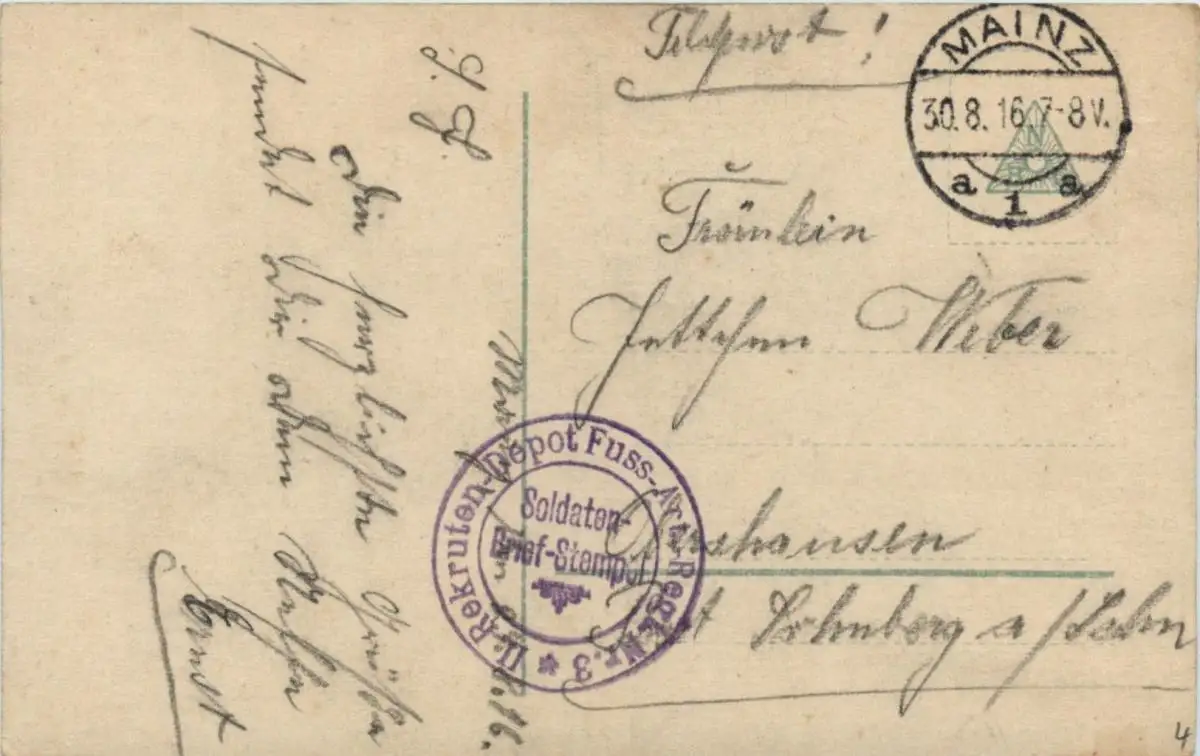 Feldpost!
MAINZ
30.8.16.7-8V.
a 1 a
Fräulein
Jettchen Weber
Post Löhnberg a/Lahn
II. Rekruten-Depot Fuss-Art.-Regt. Nr. 3 *
Soldaten-
Brief-Stempel
den 8.16.
Die herzlichsten Grüße
sendet dir dein
Ernst
4